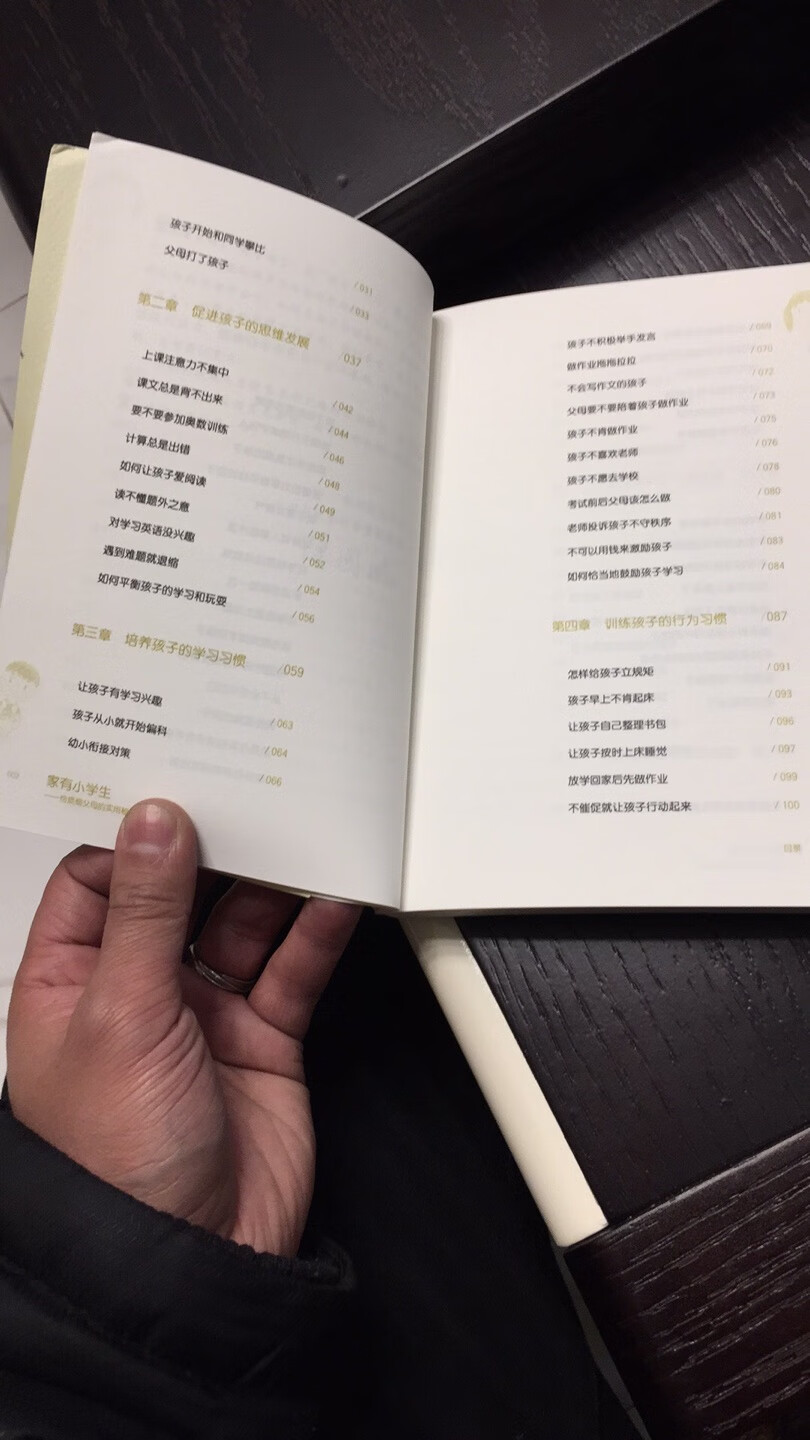 孩子开始和同学攀比 / 031
父母打了孩子 / 033
第二章 促进孩子的思维发展 / 037
上课注意力不集中 / 042
课文总是背不出来 / 044
要不要参加奥数训练 / 046
计算总是出错 / 048
如何让孩子爱阅读 / 049
读不懂题外之意 / 051
对学习英语没兴趣 / 052
遇到难题就退缩 / 054
如何平衡孩子的学习和玩耍 / 056
第三章 培养孩子的学习习惯 / 059
让孩子有学习兴趣 / 063
孩子从小就开始偏科 / 064
幼小衔接对策 / 066
家有小学生
孩子不积极举手发言 / 069
做作业拖拖拉拉 / 070
不会写作文的孩子 / 072
父母要不要陪着孩子做作业 / 073
孩子不肯做作业 / 075
孩子不喜欢老师 / 076
孩子不愿去学校 / 078
考试前后父母该怎么做 / 080
老师投诉孩子不守秩序 / 081
不可以用钱来激励孩子 / 083
如何恰当地鼓励孩子学习 / 084
第四章 训练孩子的行为习惯 / 087
怎样给孩子立规矩 / 091
孩子早上不肯起床 / 093
让孩子自己整理书包 / 096
让孩子按时上床睡觉 / 097
放学回家后先做作业 / 099
不催促就让孩子行动起来 / 100
目录